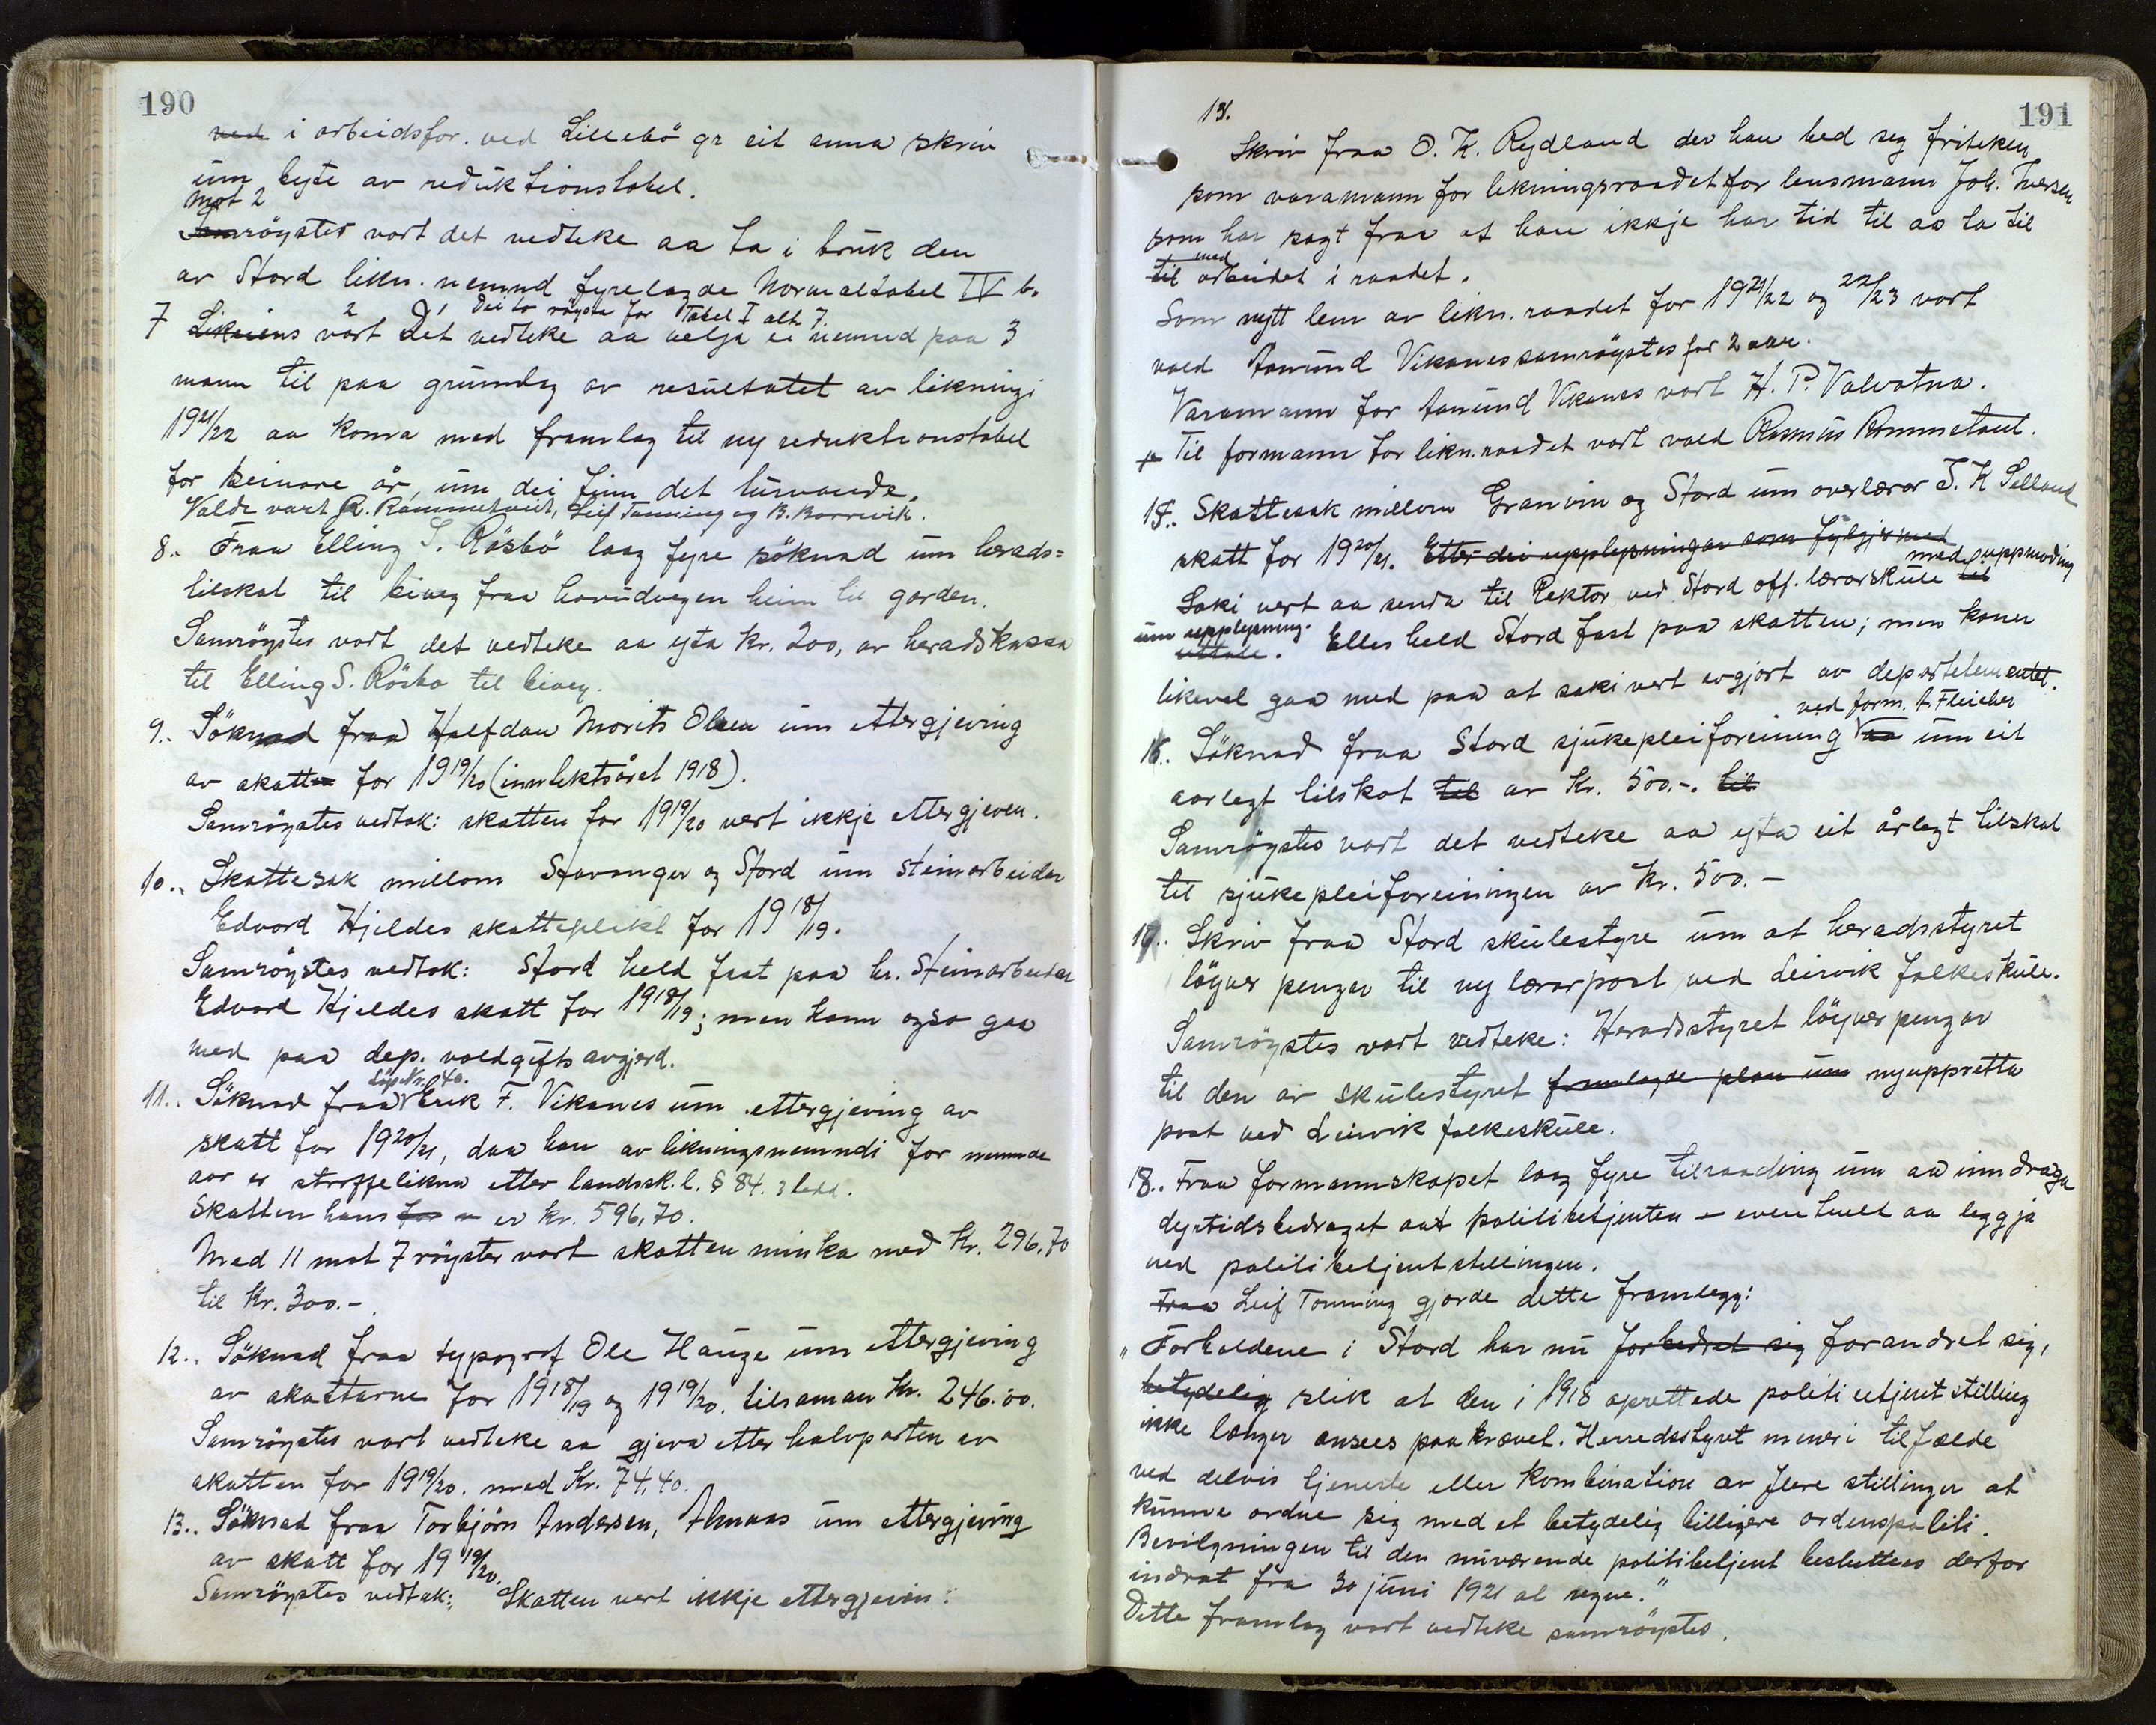 190
ved i arbeidsfor. ved Lillebö gr eit anna skriv
um byte av reduktionstabel.
mot 2
Samröystes vart det vedteke aa ta i bruk den
av Stord likn. nemnd fyrelagde Normaltabel IV b.
Dei to röysta for Tabel I alt. 7.
7 Likeiens vart Det vedteke aa velja ei nemnd paa 3
mann til paa grunnlag av resultatet av likningi
1921/22 aa koma med framlag til ny reduktionstabel
for seinare år, um dei finn det turvande.
Valde vart R. Rommetveit, Leif Tonning og B. Borrevik.
8. Fraa Elling S. Rösbö laag fyre söknad um herads-
tilskot til bivey fraa hovudvegen heim til garden.
Samröystes vart det vedteke aa yta kr. 200, av heradskassa
til Elling S. Rösbö til bivey.
9. Söknad fraa Halfdan Morits Olsen um ettergjeving
av skatten for 1919/20 (inntektsåret 1918).
Samröystes vedtak: skatten for 1919/20 vert ikkje ettergjeven.
10. Skattesak millom Stavanger og Stord um steinarbeidar
Edvard Hjeldes skatteplikt for 1918/19.
Samröystes vedtak: Stord held fast paa hr. Steinarbeidar
Edvard Hjeldes skatt for 1918/19; men kann ogso gaa
med paa dep. voldgifts avgjerd.
Löp Nr. 40.
11. Söknad fraa Erik F. Vikanes um ettergjeving av
skatt for 1920/21, daa han av likningsnemndi for nemnde
aar er straffelikna etter landssk. l. § 84. 3 ledd.
Skatten hans for er kr. 596,70.
Med 11 mot 7 röyster vart skatten minka med Kr. 296,70
til Kr. 300.-
12. Söknad fraa typograf Ole Hauge um ettergjeving
av skattarne for 1918/19 og 1919/20. tilsaman Kr. 246.00.
Samröystes vart vedteke aa gjeva etter halvparten av
skatten for 1919/20. med Kr. 74,40.
13. Söknad fraa Torbjörn Andersen, Almaas um ettergjeving
av skatt for 1919/20.
Samröystes vedtak: Skatten vert ikkje ettergjevin.
191
14.
Skriv fraa O. K. Rydland der han bed seg friteken
som varamann for likningsraadet for lensmann Joh. Iversen
som har sagt fraa at han ikkje har tid til aa ta til
med
til arbeidet i raadet.
Som nytt lem av likn. raadet for 1921/22 og 22/23 vart
vald Aamund Vikanes samröystes for 2 aar.
Varamann for Aamund Vikanes vart H. P. Valvatna.
Til formann for likn. raadet vart vald Rasmus Rommetveit.
15. Skattesak millom Granvin og Stord um overlærar T. K Selland
skatt for 1920/21. Etter dei upplysningar som fylgjer med
med uppmoding
Saki vert aa senda til Rektor ved Stord off. lærarskule til
um upplysning.
uttale. Elles held Stord fast paa skatten; men kann
likevel gaa med paa at saki vert avgjort av departementet.
ved form. A. Fleicher
16. Söknad fraa Stord sjukepleiforeining um eit
aarlegt tilskot til av kr. 500.-. til
Samröystes vart det vedteke aa yta eit årlegt tilskot
til sjukepleiforeiningen av Kr. 500.-
17. Skriv fraa Stord skulestyre um at heradsstyret
löyver pengar til ny lærarpost ved Leirvik folkeskule.
Samröystes vart vedteke: Heradsstyret löyver pengar
til den av skulestyret framlagde plan um nyuppretta
post ved Leirvik folkeskule.
18. Fraa formannskapet laag fyre tilraading um aa inndraga
dyrtidsbidraget aat politibetjenten - eventuelt aa leggja
ned politibetjentstillingen.
Fraa Leif Tonning gjorde dette framlegg:
"Forholdene i Stord har nu forbedret sig forandret sig,
betydelig slik at den i 1918 oprettede politibetjentstilling
ikke længer ansees paakrævet. Herredsstyret mener i tilfælde
ved delvis tjeneste eller kombination av flere stillinger at
kunne ordne sig med et betydelig billigere ordenspoliti.
Bevilgningen til den nuværende politibetjent besluttes derfor
indrat fra 30 juni 1921 at regne."
Dette framlag vart vedteke samröystes.